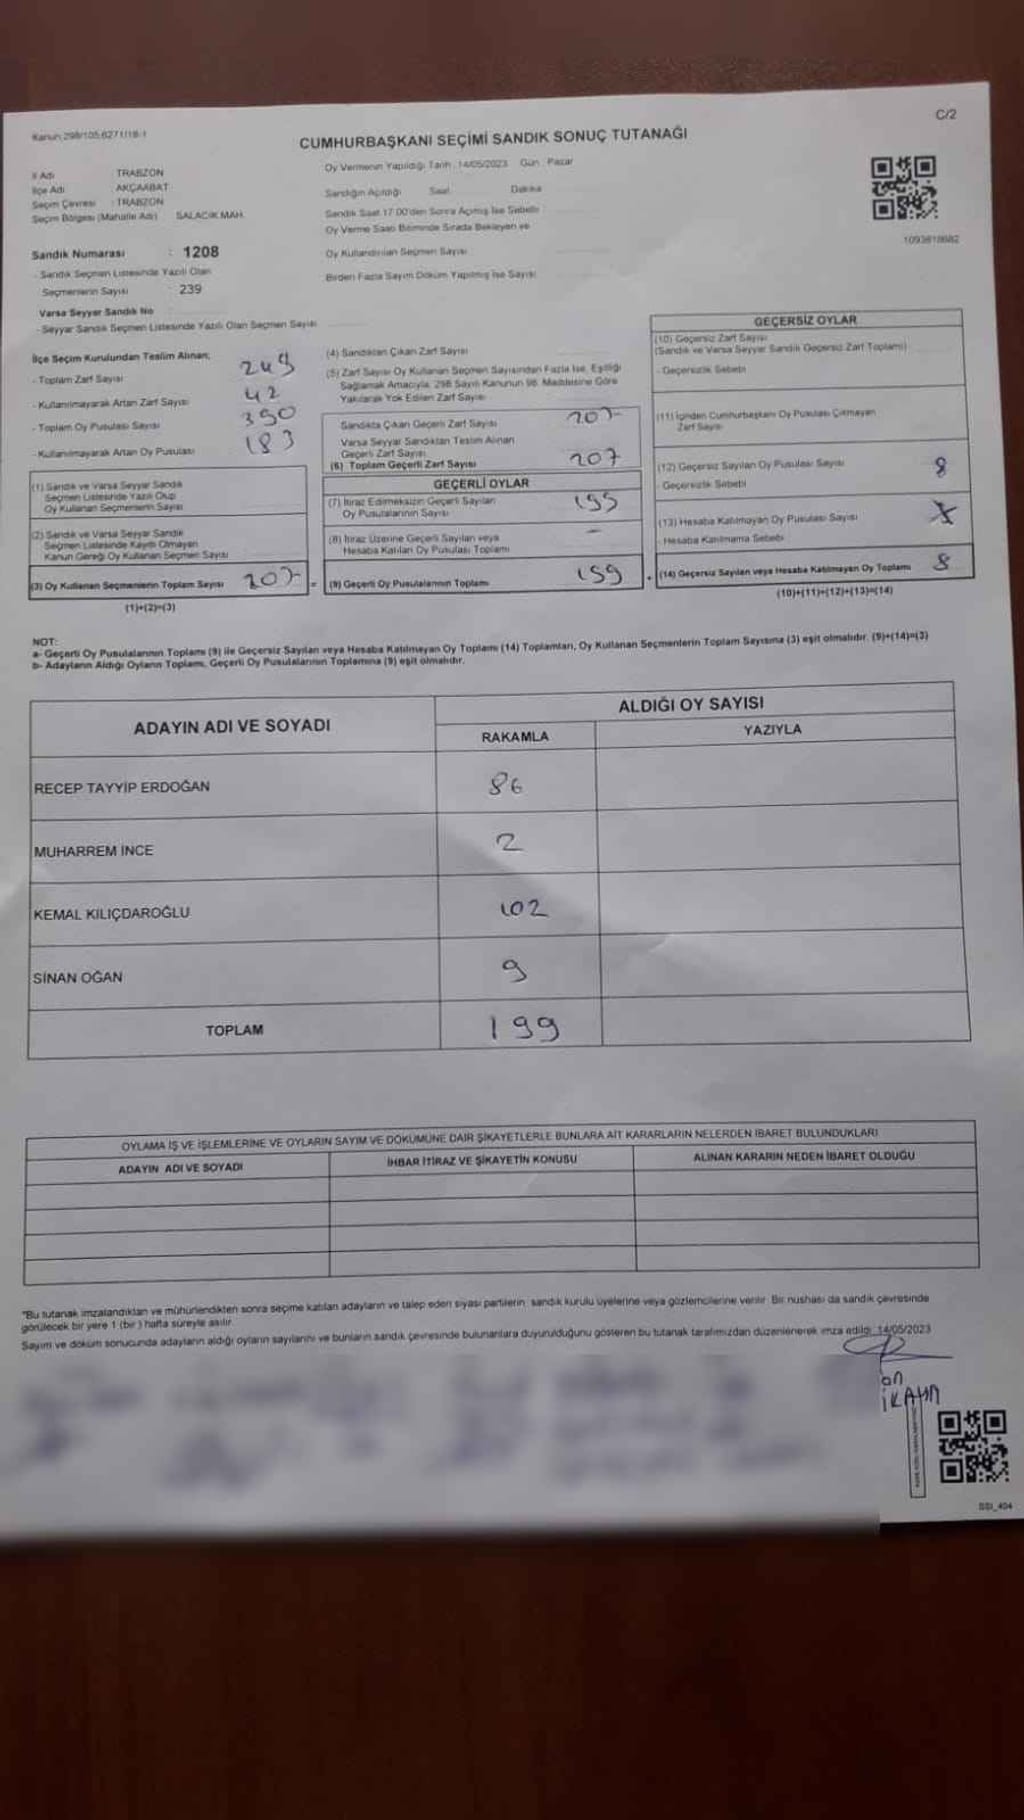 Kanun 298/105,6271/18-1
C/2
CUMHURBAŞKANI SEÇİMİ SANDIK SONUÇ TUTANAĞI
İl Adı TRABZON
İlçe Adı AKÇAABAT
Seçim Çevresi : TRABZON
Seçim Bölgesi (Mahalle Adı) SALACIK MAH.
Sandık Numarası : 1208
- Sandık Seçmen Listesinde Yazılı Olan
Seçmenlerin Sayısı : 239
Varsa Seyyar Sandık No
- Seyyar Sandık Seçmen Listesinde Yazılı Olan Seçmen Sayısı
Oy Vermenin Yapıldığı Tarih : 14/05/2023 Gün : Pazar
Sandığın Açıldığı Saat Dakika
Sandık Saat 17.00'den Sonra Açılmış İse Sebebi :
Oy Verme Saati Bitiminde Sırada Bekleyen ve
Oy Kullandırılan Seçmen Sayısı
Birden Fazla Sayım Döküm Yapılmış İse Sayısı
1093618682
İlçe Seçim Kurulundan Teslim Alınan;
- Toplam Zarf Sayısı 249
- Kullanılmayarak Artan Zarf Sayısı 42
- Toplam Oy Pusulası Sayısı 390
- Kullanılmayarak Artan Oy Pusulası 183
(1) Sandık ve Varsa Seyyar Sandık
Seçmen Listesinde Yazılı Olup
Oy Kullanan Seçmenlerin Sayısı
(2) Sandık ve Varsa Seyyar Sandık
Seçmen Listesinde Kayıtlı Olmayan
Kanun Gereği Oy Kullanan Seçmen Sayısı
(3) Oy Kullanan Seçmenlerin Toplam Sayısı 207 =
(1)+(2)=(3)
(4) Sandıktan Çıkan Zarf Sayısı
(5) Zarf Sayısı Oy Kullanan Seçmen Sayısından Fazla İse, Eşitliği
Sağlamak Amacıyla, 298 Sayılı Kanunun 98. Maddesine Göre
Yakılarak Yok Edilen Zarf Sayısı
Sandıkta Çıkan Geçerli Zarf Sayısı 207
Varsa Seyyar Sandıktan Teslim Alınan
Geçerli Zarf Sayısı
(6) Toplam Geçerli Zarf Sayısı 207
GEÇERLİ OYLAR
(7) İtiraz Edilmeksizin Geçerli Sayılan
Oy Pusulalarının Sayısı 199
(8) İtiraz Üzerine Geçerli Sayılan veya
Hesaba Katılan Oy Pusulası Toplamı -
(9) Geçerli Oy Pusulalarının Toplamı 199 +
GEÇERSİZ OYLAR
(10) Geçersiz Zarf Sayısı
(Sandık ve Varsa Seyyar Sandık Geçersiz Zarf Toplamı)
- Geçersizlik Sebebi
(11) İçinden Cumhurbaşkanı Oy Pusulası Çıkmayan
Zarf Sayısı
(12) Geçersiz Sayılan Oy Pusulası Sayısı 8
- Geçersizlik Sebebi
(13) Hesaba Katılmayan Oy Pusulası Sayısı
- Hesaba Katılmama Sebebi
(14) Geçersiz Sayılan veya Hesaba Katılmayan Oy Toplamı 8
(10)+(11)+(12)+(13)=(14)
NOT:
a- Geçerli Oy Pusulalarının Toplamı (9) ile Geçersiz Sayılan veya Hesaba Katılmayan Oy Toplamı (14) Toplamları, Oy Kullanan Seçmenlerin Toplam Sayısına (3) eşit olmalıdır. (9)+(14)=(3)
b- Adayların Aldığı Oyların Toplamı, Geçerli Oy Pusulalarının Toplamına (9) eşit olmalıdır.
ADAYIN ADI VE SOYADI ALDIĞI OY SAYISI
RAKAMLA YAZIYLA
RECEP TAYYİP ERDOĞAN 86
MUHARREM İNCE 2
KEMAL KILIÇDAROĞLU 102
SİNAN OĞAN 9
TOPLAM 199
OYLAMA İŞ VE İŞLEMLERİNE VE OYLARIN SAYIM VE DÖKÜMÜNE DAİR ŞİKAYETLERLE BUNLARA AİT KARARLARIN NELERDEN İBARET BULUNDUKLARI
ADAYIN ADI VE SOYADI İHBAR İTİRAZ VE ŞİKAYETİN KONUSU ALINAN KARARIN NEDEN İBARET OLDUĞU
"Bu tutanak imzalandıktan ve mühürlendikten sonra seçime katılan adayların ve talep eden siyasi partilerin, sandık kurulu üyelerine veya gözlemcilerine verilir. Bir nüshası da sandık çevresinde
görülecek bir yere 1 (bir) hafta süreyle asılır.
Sayım ve döküm sonucunda adayların aldığı oyların sayılarını ve bunların sandık çevresinde bulunanlara duyurulduğunu gösteren bu tutanak tarafımızdan düzenlenerek imza edildi. 14/05/2023
SSI_404